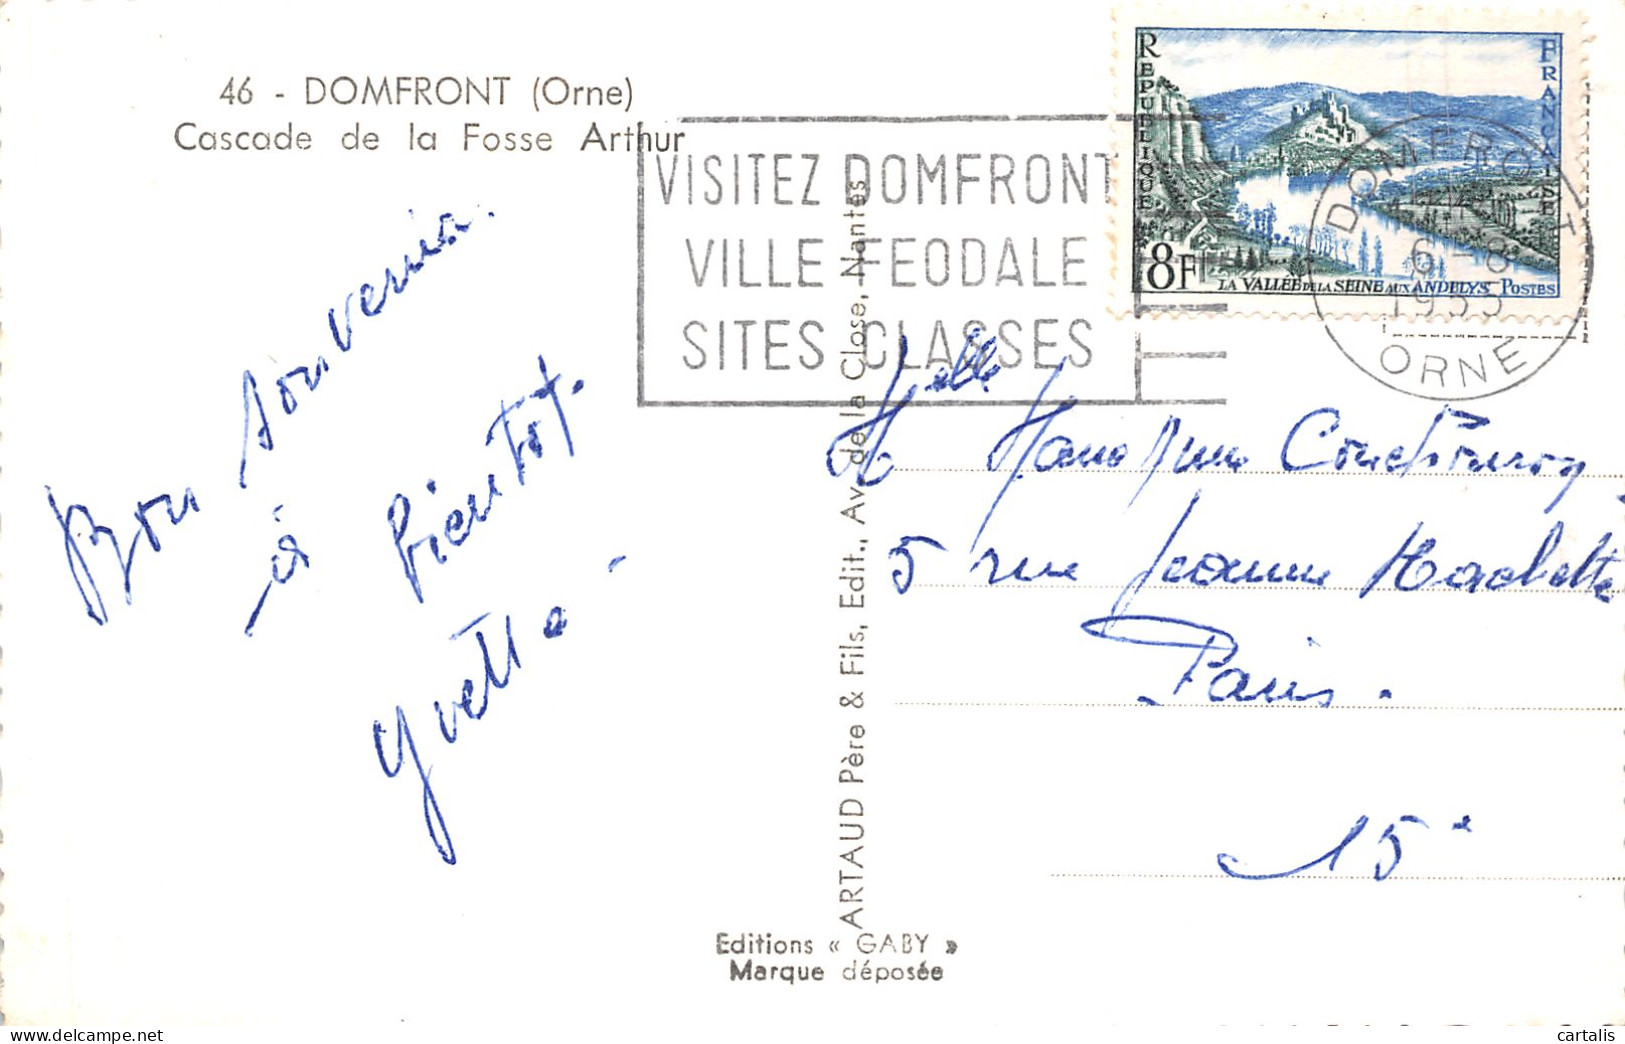 46 - DOMFRONT (Orne)
Cascade de la Fosse Arthur
Bon souvenir.
à bientôt.
Yvette
VISITEZ DOMFRONT
VILLE FEODALE
SITES CLASSES
REPUBLIQUE
FRANÇAISE
8F
LA VALLEE DE LA SEINE AUX ANDELYS POSTES
DOMFRONT
6-8
1955
ORNE
Melle
5 rue Jeanne Hachette
Paris.
15e
ARTAUD Père & Fils, Edit., Av. de la Close, Nantes
Editions « GABY »
Marque déposée
www.delcampe.net
cartalis